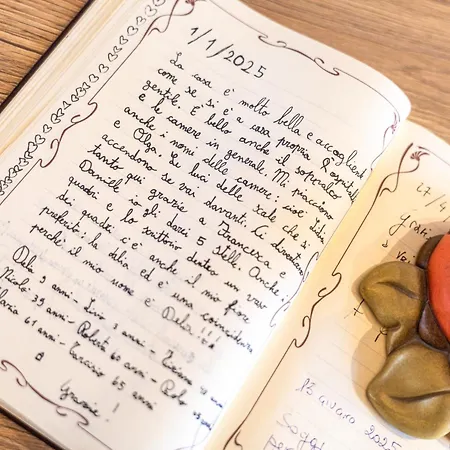 1/1/2025
La casa è molto bella e accogliente
come se si è a casa propria. L'ospitalità
gentile. È bello anche il soppalco
e le camere in generale. Mi piacciono
anche i nomi delle camere: cioè Lidia
e Olga. Le luci delle scale che si
accendono se vai davanti. Ci
tanto qui grazie a Francesca e
Daniele io gli darei 5 stelle. Anche i
quadri e lo scrittoio dietro un vaso
dei quadri c'è anche il mio fiore
preferito: la dalia ed è una coincidenza
perché il mio nome è Dalia!!!
Dalia 9 anni - 3 anni -
Nicolò 39 anni - Roberta 60 anni -
61 anni - 65 anni
Grazie!
27/4
13 giugno 2025